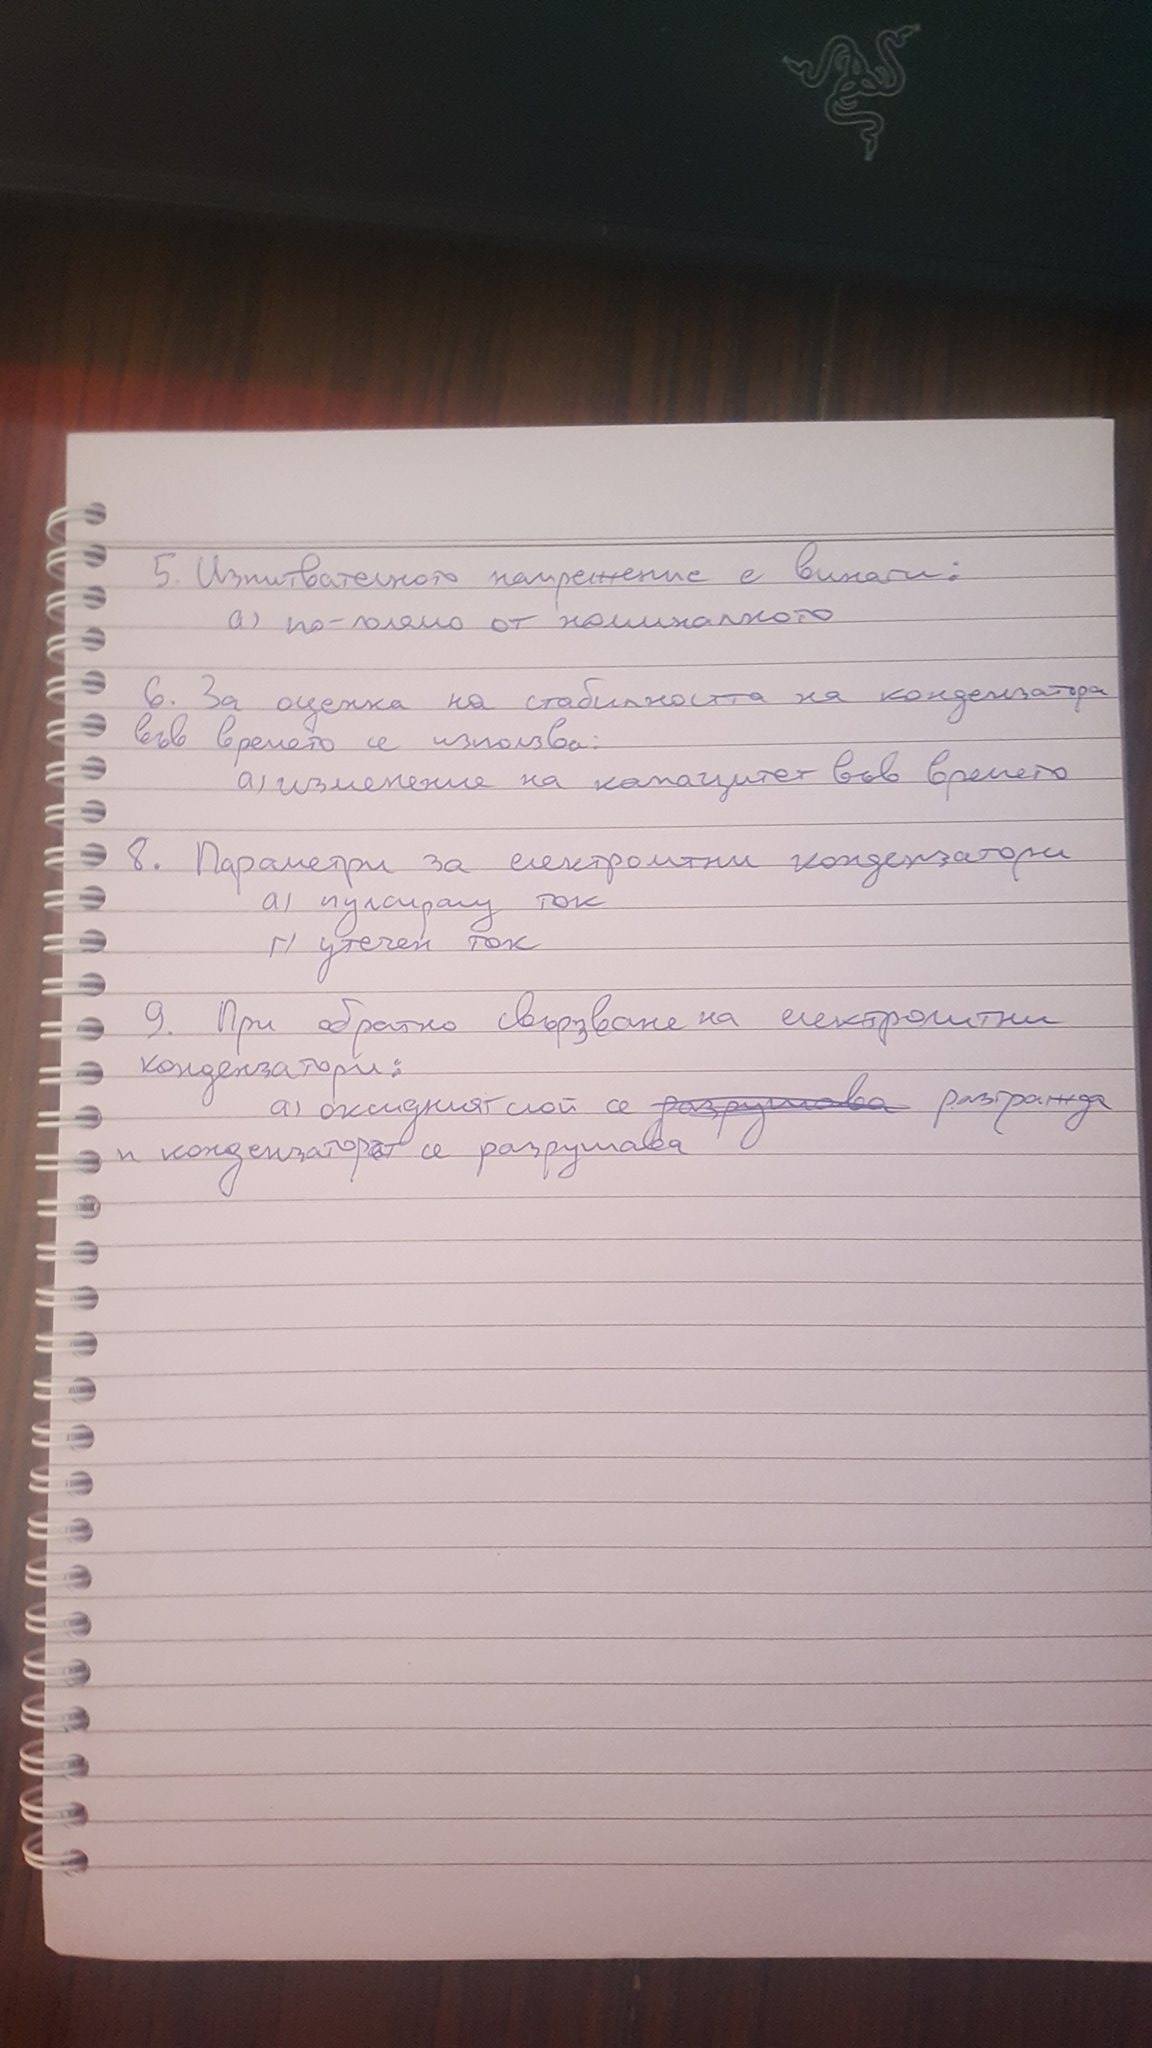 5. Изпитвателното напрежение е винаги:
а) по-голямо от номиналното
6. За оценка на стабилността на кондензатора
във времето се използва:
а) изменение на капацитет във времето
8. Параметри за електролитни кондензатори
а) пулсиращ ток
г) утечен ток
9. При обратно свързване на електролитни
кондензатори:
а) оксидният слой се разрушава разгражда
и кондензаторът се разрушава